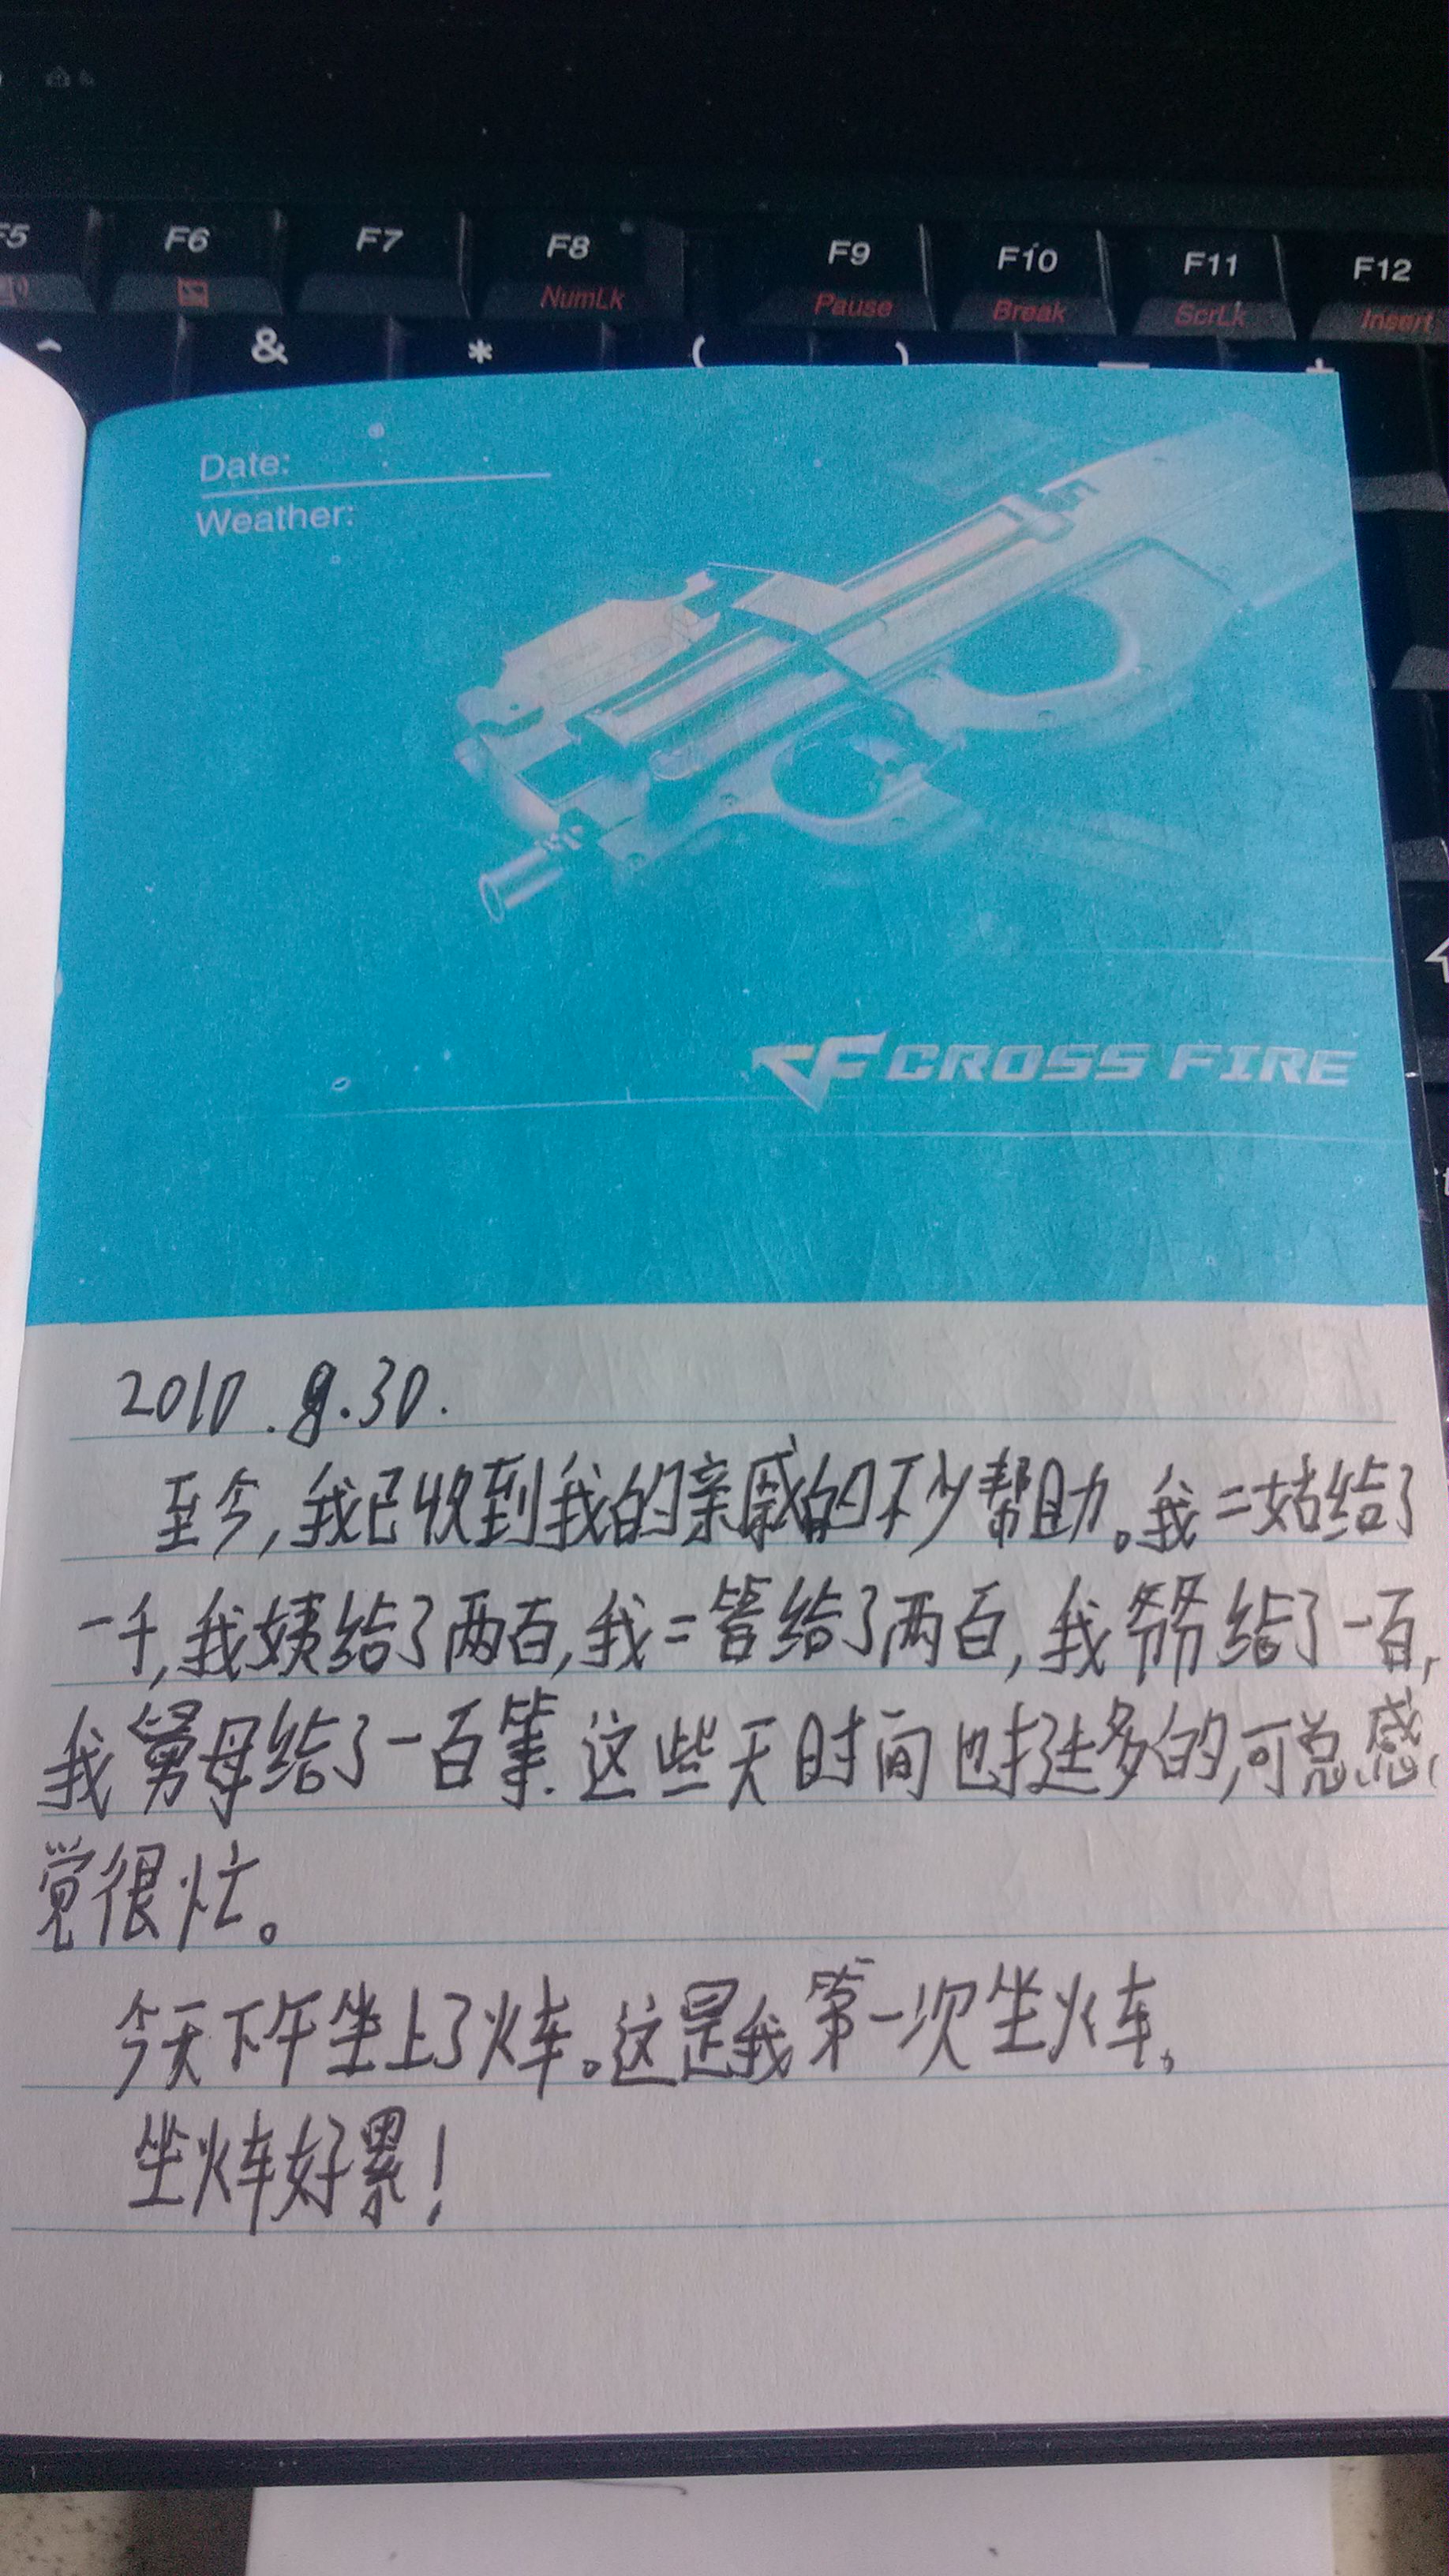 F5 F6 F7 F8 F9 F10 F11 F12
NumLk Pause Break ScrLk Insert
^ & * ( ) — +
Date:
Weather:
CF CROSS FIRE
2010.8.30.
至今,我已收到我的亲戚的不少帮助。我二姑给了
一千,我姨给了两百,我二爸给了两百,我爷爷给了一百,
我舅母给了一百等.这些天时间也挺多的,可总感
觉很忙。
今天下午坐上了火车。这是我第一次坐火车,
坐火车好累!